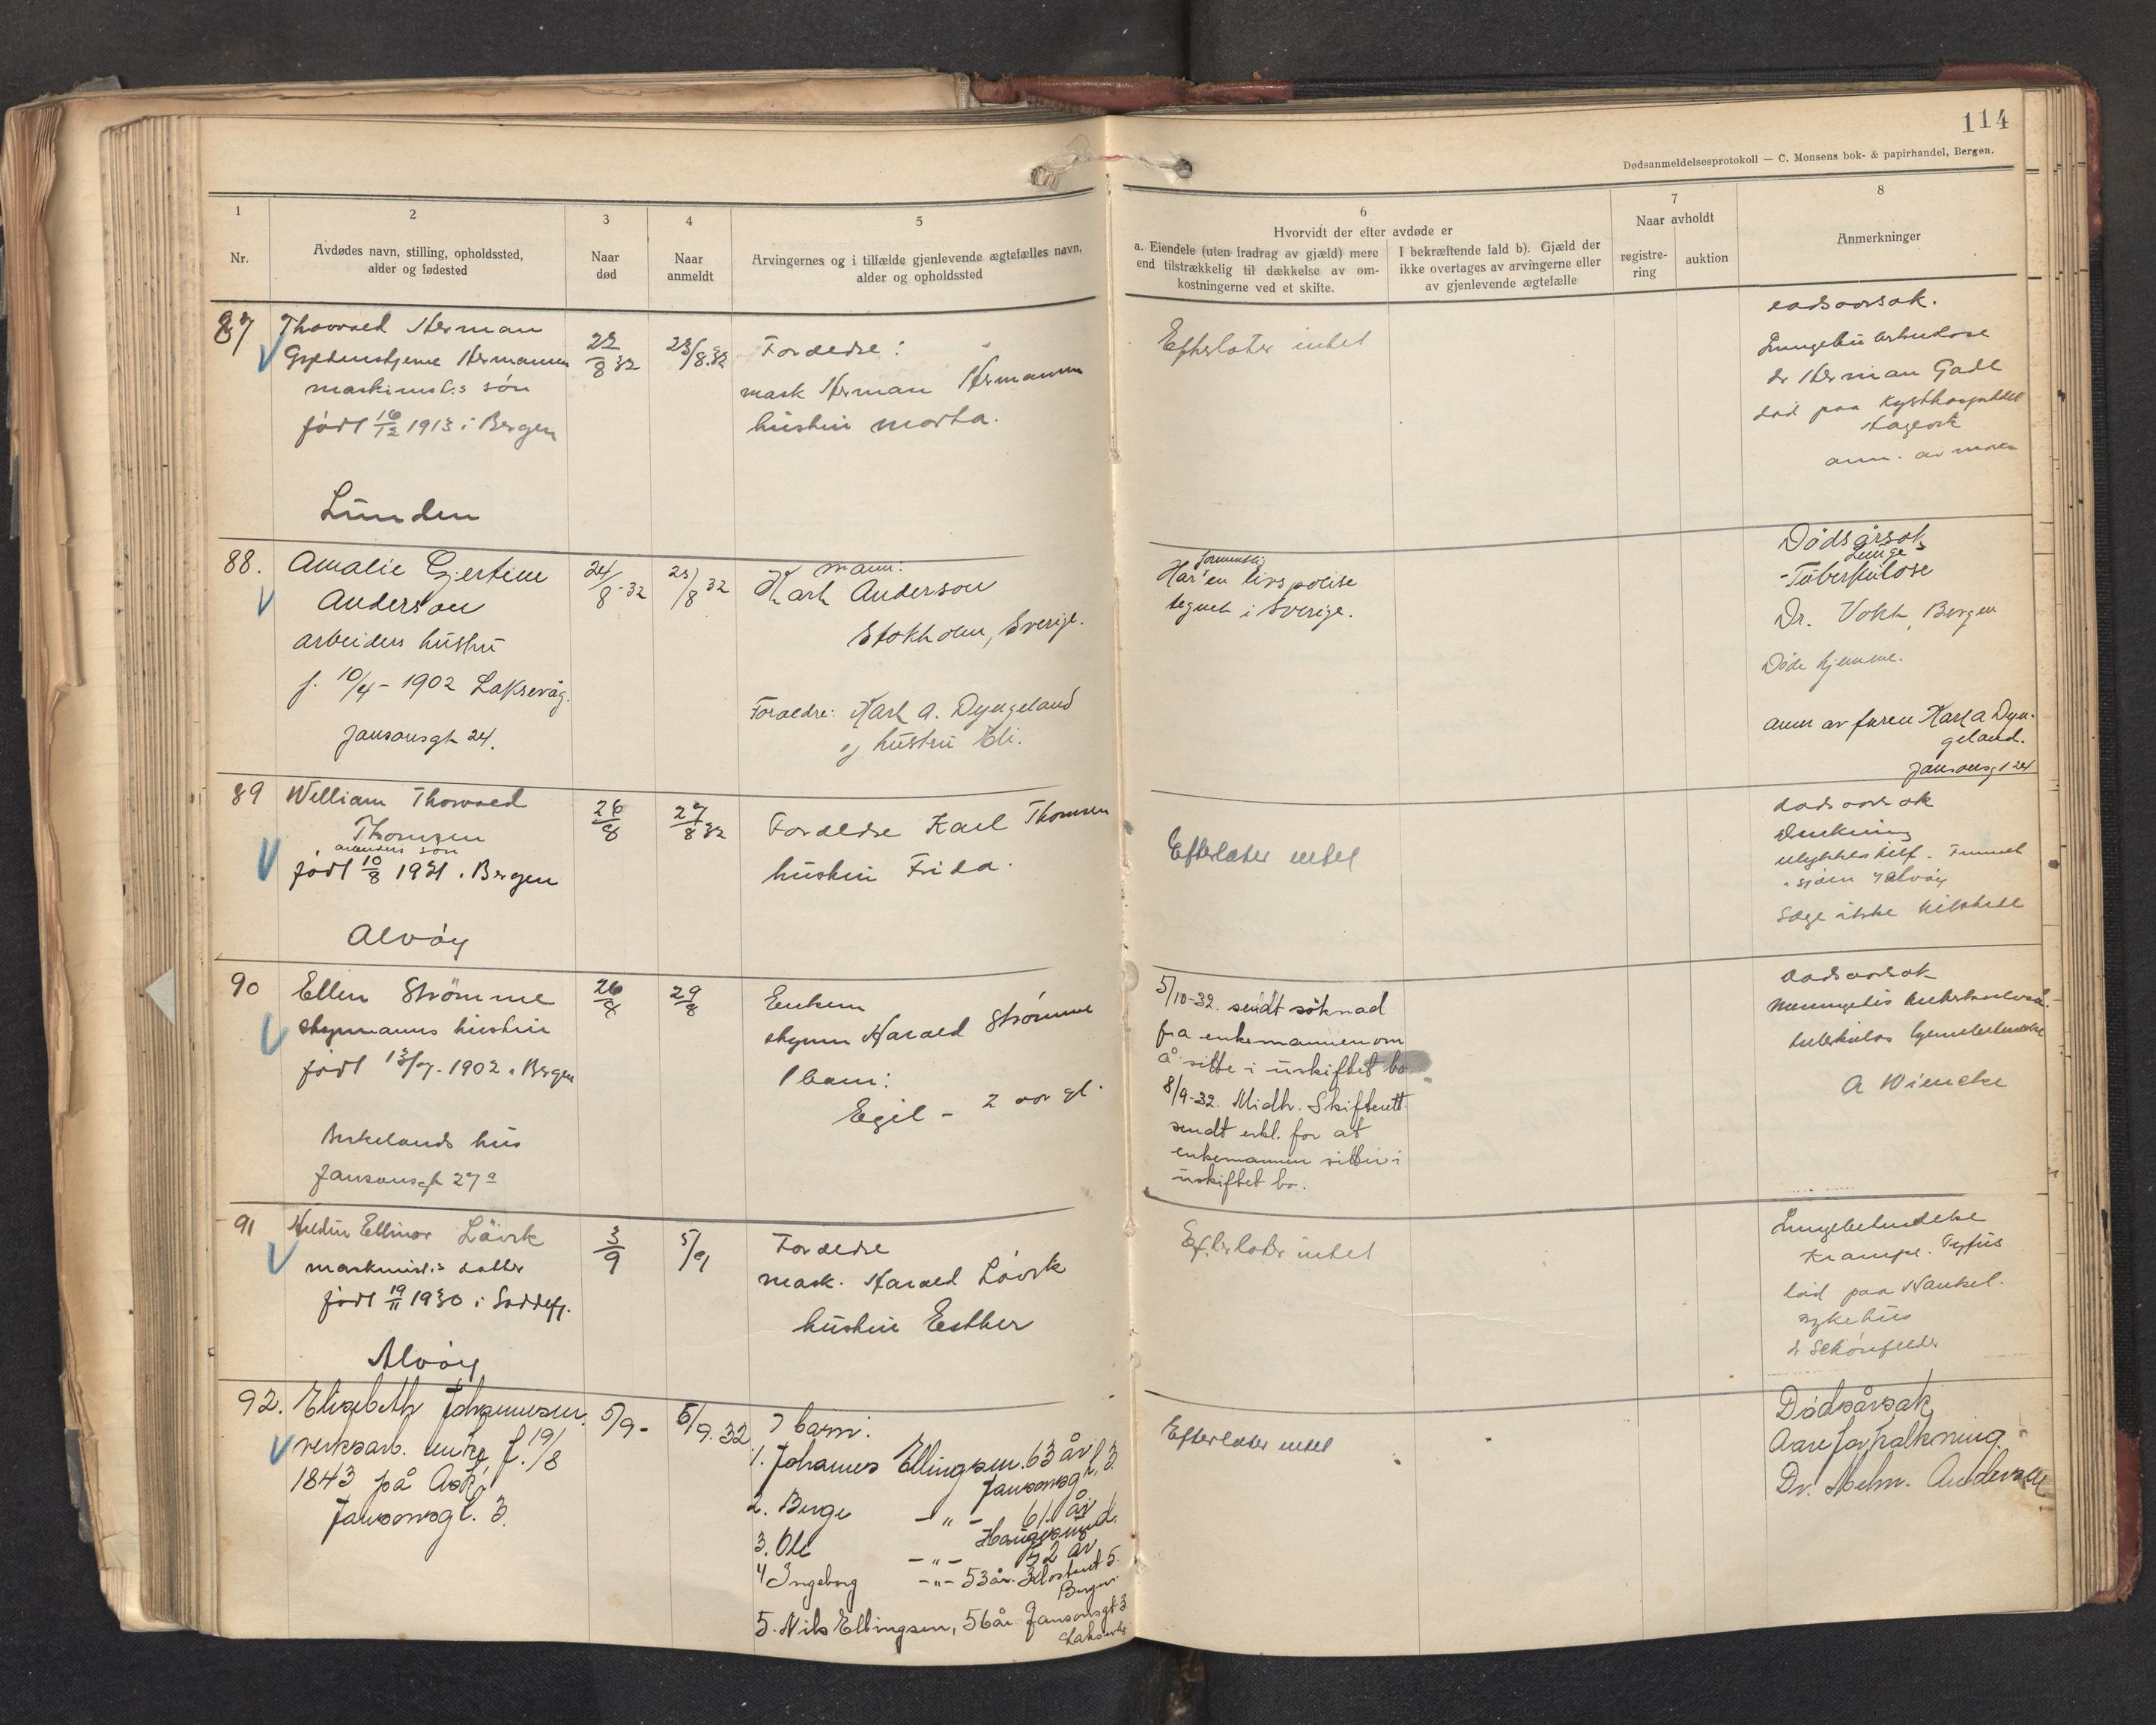 114
Dødsanmeldelsesprotokoll — C. Monsens bok- & papirhandel, Bergen.
1
Nr.
2
Avdødes navn, stilling, opholdssted,
alder og fødested
3
Naar
død
4
Naar
anmeldt
5
Arvingernes og i tilfælde gjenlevende ægtefælles navn,
alder og opholdssted
6
Hvorvidt der efter avdøde er
a. Eiendele (uten fradrag av gjæld) mere
end tilstrækkelig til dækkelse av om-
kostningerne ved et skifte.
I bekræftende fald b). Gjæld der
ikke overtages av arvingerne eller
av gjenlevende ægtefælle
7
Naar avholdt
registre-
ring
auktion
8
Anmerkninger
87
Thorvald Herman
Gyldenstjerne Hermansen
maskinist.s søn
født 16/12 1913 i Bergen
Lunden
22/8 32
23/8.32
Forældre:
mask Herman Hermansen
hustru Marta.
Efterlater intet
dødsaarsak.
Lungetuberkulose
dr Herman Gade
død paa Kysthospitalet
Hagevik
anm. av moren
88.
Amalie Gjertine
Anderson
arbeiders hustru
f. 10/4 - 1902 Laksevåg.
Jansonsgt 24.
24/8-32
25/8 32
mann:
Karl Anderson
Stokholm, Sverige.
Foraeldre: Karl A. Dyngeland
og hustru Eli.
formentlig
Har en livspolise
tegnet i Sverige.
Dødsårsak
Lunge-
Tuberkulose
Dr. Vokt, Bergen
Døde hjemme.
anm av faren Karl A Dyn-
geland.
Jansonsgt 24
89
William Thorvald
Thomsen
arbeiders søn
født 10/8 1921 i Bergen
Alvøy
26/8
27/8 32
Forældre Karl Thomsen
hustru Frida.
Efterlater intet
dødsaarsak
Drukning
ulykkestilf. Funnet
i sjøen i Alvøy
Læge ikke tilstede
90
Ellen Strømme
styrmanns hustru
født 13/7-1902 i Bergen
Birkelands hus
Jansonsgt 27a
26/8
29/8
Enkem
styrm Harald Strømme
1 barn:
Egil - 2 aar gl.
5/10-32. sendt søknad
fra enkemannen om
å sitte i uskiftet bo
8/9-32. Midh. Skifterett
sendt erkl. for at
enkemannen sitter i
uskiftet bo.
dødsaarsak
A Wiencke
91
Ellinor Løvik
maskinist.s datter
født 19/11 1930 i Loddefj.
Alvøy
3/9
5/9
Forældre
mask. Harald Løvik
hustru Esther
Efterlater intet
Lungebetendelse
Krampe. Tyfus
død paa Haukel.
sykehus
dr Schønfelder
92.
Elisabeth Johannesen.
verksarb. enke, f. 19/8
1843 på Ask,
Jansonsgt. 3.
5/9-
6/9.32
7 barn:
1. Johannes Ellingsen. 63 år,
Jansonsgt. 3.
2. Berge -"- 61 år
Haugesund.
3. Ole -"- 52 år
4 Ingeborg -"- 53 år. Klostret 5.
Bergen.
5. Nils Ellingsen, 56 år Jansonsgt 3
Laksevåg
Efterlater intet
Dødsårsak
Aareforkalkning.
Dr. Andersen